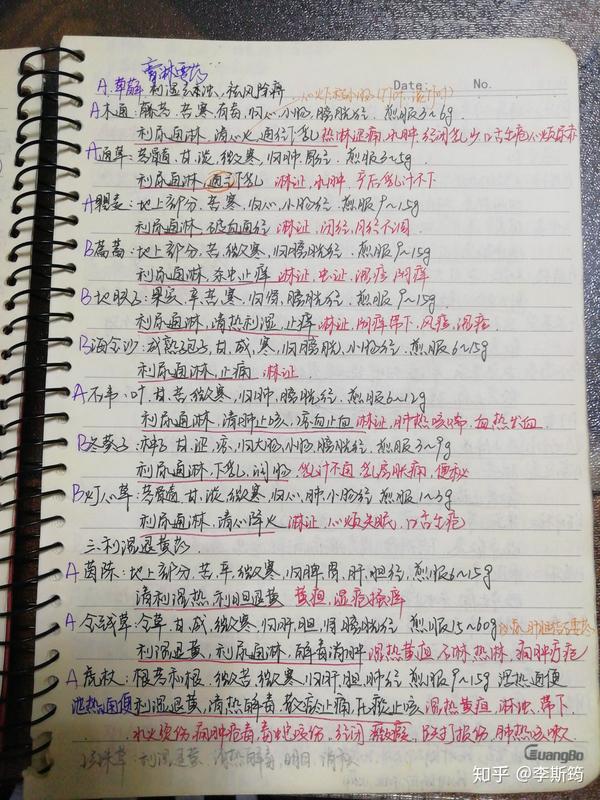 膏淋要药
A.萆薢 利湿去浊、祛风除痹
Date: No.
A木通:藤茎.苦寒有毒,归心、小肠、膀胱经.煎服3~6g
利尿通淋,清心火,通经下乳 热淋涩痛,水肿,经闭乳少 口舌生疮 心烦尿赤
A通草:茎髓,甘,淡,微寒,归肺胃经.煎服3~5g.
利尿通淋,通气下乳 淋证,水肿,产后乳汁不下
A瞿麦:地上部分,苦寒,归心、小肠经.煎服9~15g
利尿通淋,破血通经 淋证,闭经,月经不调
B萹蓄:地上部分,苦,微寒,归膀胱经.煎服9~15g
利尿通淋,杀虫止痒 淋证,虫证,湿疹阴痒
B地肤子:果实,辛苦,寒,归肾,膀胱经.煎服9~15g
利尿通淋,清热利湿,止痒 淋证,阴痒带下,风疹,湿疹
B海金沙:成熟孢子,甘,咸,寒,归膀胱,小肠经.煎服6~15g
利尿通淋,止痛 淋证.
A石韦:叶,甘,苦,微寒,归肺,膀胱经.煎服6~12g
利尿通淋,清肺止咳,凉血止血 淋证,肺热咳喘,血热出血
B冬葵子:种子,甘,涩,凉,归大肠,小肠,膀胱经.煎服3~9g
利尿通淋,下乳,润肠 乳汁不通 乳房胀痛,便秘
B灯心草:茎髓,甘,淡,微寒,归心,肺,小肠经.煎服1~3g
利尿通淋,清心降火 淋证,心烦失眠,口舌生疮
三.利湿退黄药.
A茵陈:地上部分,苦,辛,微寒,归脾,胃,肝,胆经.煎服6~15g
清利湿热,利胆退黄 黄疸,湿疮瘙痒
A金钱草:全草,甘,咸,微寒,归肝,胆,肾,膀胱经 煎服15~60g
利湿退黄,利尿通淋,解毒消肿 湿热黄疸 石淋,热淋,痈肿疔疮
A虎杖:根茎和根,微苦,微寒,归肝胆肺经 煎服9~15g 泄热通便
泄热通便 利湿退黄,清热解毒,散瘀止痛,化痰止咳 湿热黄疸 淋浊,带下.
水火烫伤,痈肿疮毒,毒蛇咬伤,经闭 癥瘕,跌打损伤,肺热咳嗽
珍珠草:利湿退黄、清热解毒、明目、消积
GuangBo
知乎 @李斯筠